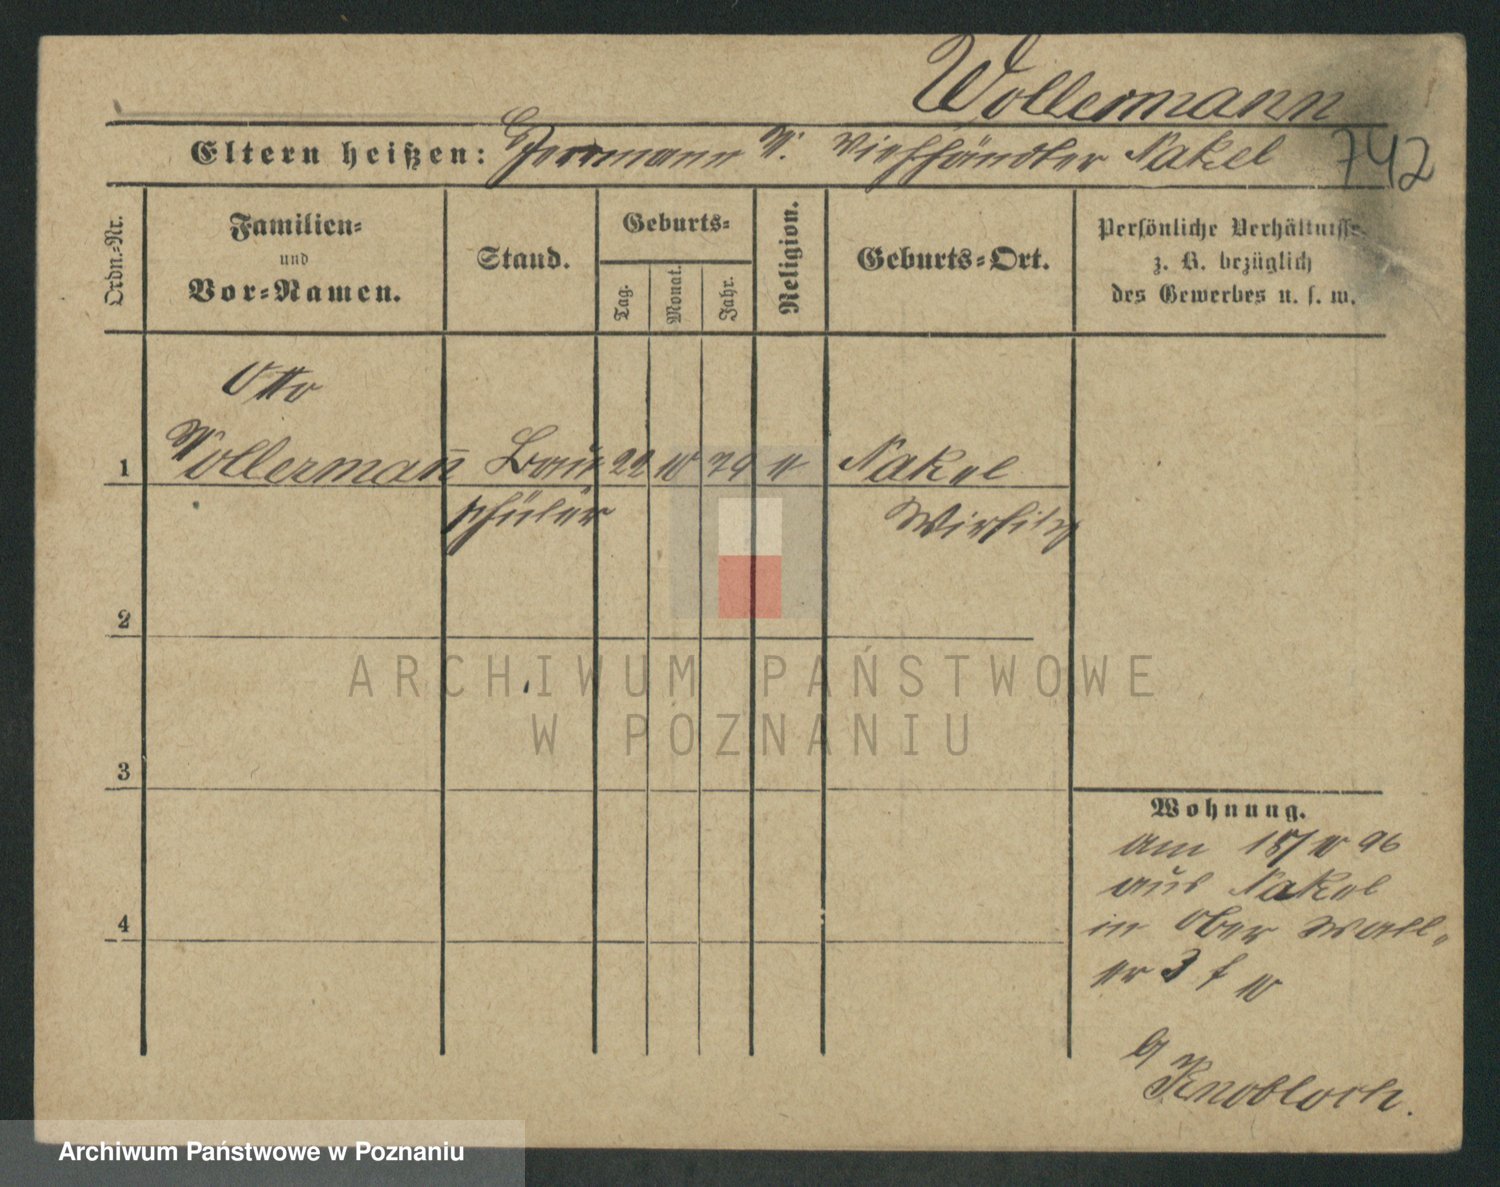 Wollermann
Eltern heißen: Herrmann W. Viehhändler Nakel 742
Ordn.-Nr.
Familien-
und
Vor-Namen.
Stand.
Geburts-
Tag.
Monat.
Jahr.
Religion.
Geburts-Ort.
Persönliche Verhältnisse
z. B. bezüglich
des Gewerbes u. s. w.
Otto
1 Wollermann Bau 22 10 79 Nakel
schüler Wirsitz
2
3
4
Wohnung.
am 15/10 96
aus Nakel
in Ober Wall-
3
b/
Knobloch.
ARCHIWUM PAŃSTWOWE
W POZNANIU
Archiwum Państwowe w Poznaniu